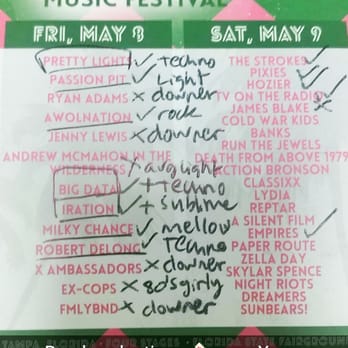 MUSIC FESTIVAL
FRI, MAY 8
PRETTY LIGHTS ✓ techno
PASSION PIT ✓ Light
RYAN ADAMS x downer
AWOLNATION ✓ rock
JENNY LEWIS x downer
ANDREW MCMAHON IN THE
WILDERNESS
BIG DATA ✓ + techno
IRATION ✓ + sublime
MILKY CHANCE ✓ mellow
ROBERT DELONG ✓ Techno
X AMBASSADORS x downer
EX-COPS x 80's girly
FMLYBND x downer
SAT, MAY 9
THE STROKES ✓
PIXIES ✓
HOZIER ✓
TV ON THE RADIO ✓
JAMES BLAKE x
COLD WAR KIDS
BANKS
RUN THE JEWELS
DEATH FROM ABOVE 1979
ACTION BRONSON
CLASSIXX
LYDIA
REPTAR
A SILENT FILM
EMPIRES ✓
PAPER ROUTE
ZELLA DAY
SKYLAR SPENCE
NIGHT RIOTS
DREAMERS
SUNBEARS!
TAMPA, FLORIDA FOUR STAGES FLORIDA STATE FAIRGROUNDS